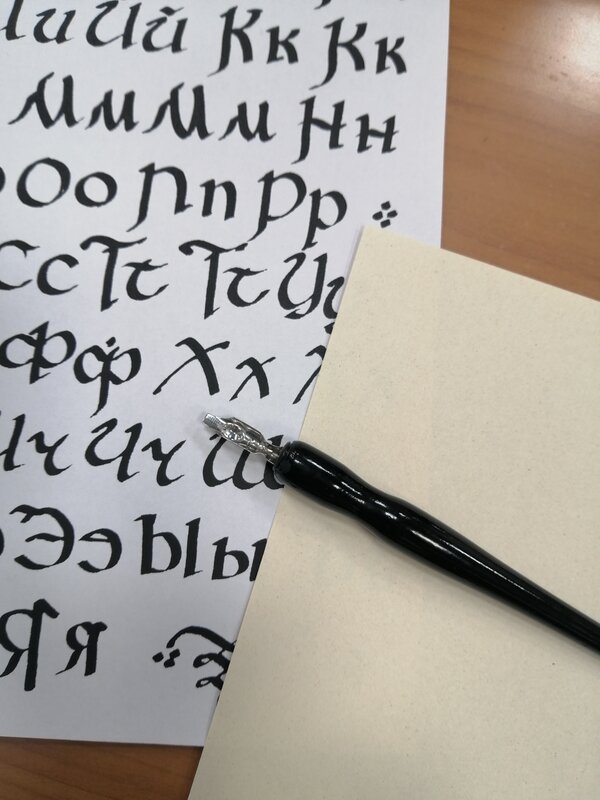 Ии Ий Кк Кк
Мм Мм Нн
Оо Пп Рр
Сс Тт Тт Уу
Фф Хх
Чч Ш
Ээ Ы ы
Я я